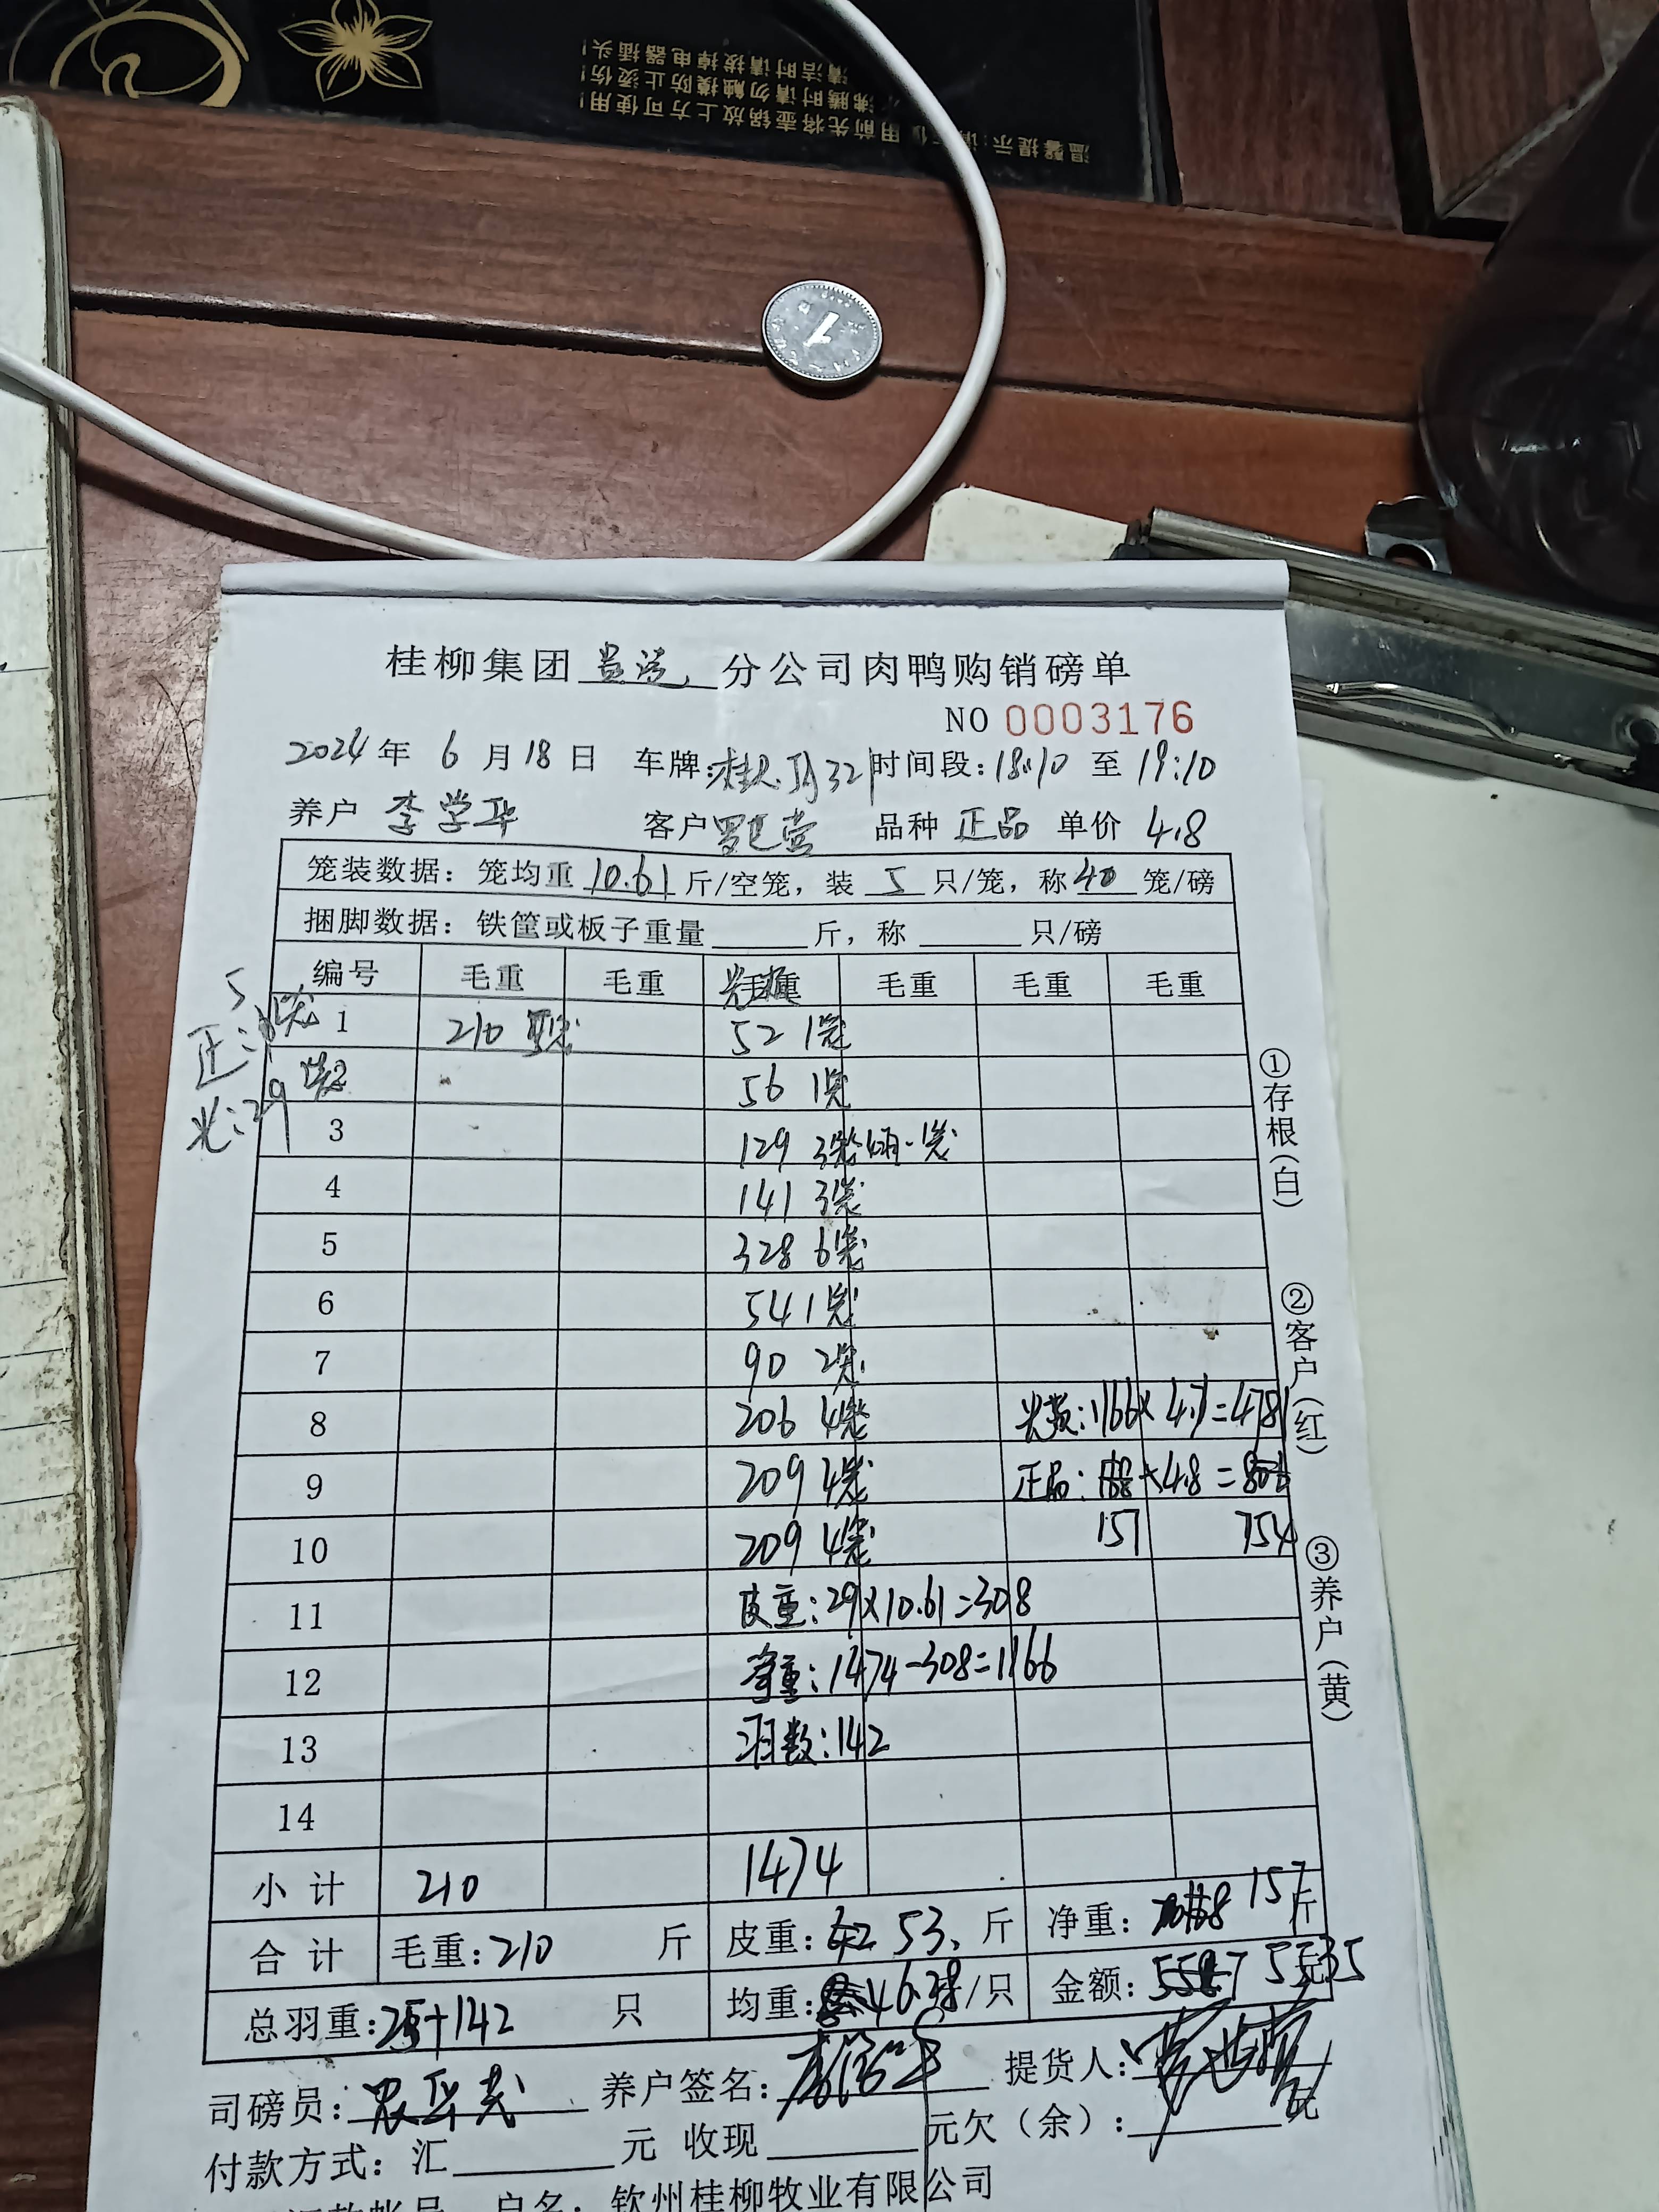 温馨提示:请 使用前先将壶锅放上方可使用!
沸腾时请勿触摸防止烫伤!
清洁时请拔掉电器插头!
1
桂柳集团 分公司肉鸭购销磅单
NO 0003176
2024年 6月18日 车牌: 时间段:18:10 至 19:10
养户 李学华 客户 品种 正品 单价 4.8
笼装数据: 笼均重 10.61 斤/空笼, 装 5 只/笼, 称 40 笼/磅
捆脚数据: 铁筐或板子重量 斤, 称 只/磅
编号 毛重 毛重 毛重 毛重 毛重 毛重
5
1 210 52 1笼
正:
2 56 1笼
光:29
3 129 3笼 1笼
4 141 3笼
5 328 6笼
6 54 1笼
7 90 2笼
8 206 4笼 光鸭:1166×4.1=4781
9 209 4笼 正品: ×4.8=
10 209 4笼 157 754
11 皮重:29×10.61=308
12 净重:1474-308=1166
13 羽数:142
14
小计 210 1474
合计 毛重:210 斤 皮重: 53 斤 净重: 157 斤
总羽重:25+142 只 均重: 6.28/只 金额: 5535
司磅员: 养户签名: 提货人:
付款方式: 汇 元 收现 元欠(余): 元
户名: 钦州桂柳牧业有限公司
①存根(白)
②客户(红)
③养户(黄)